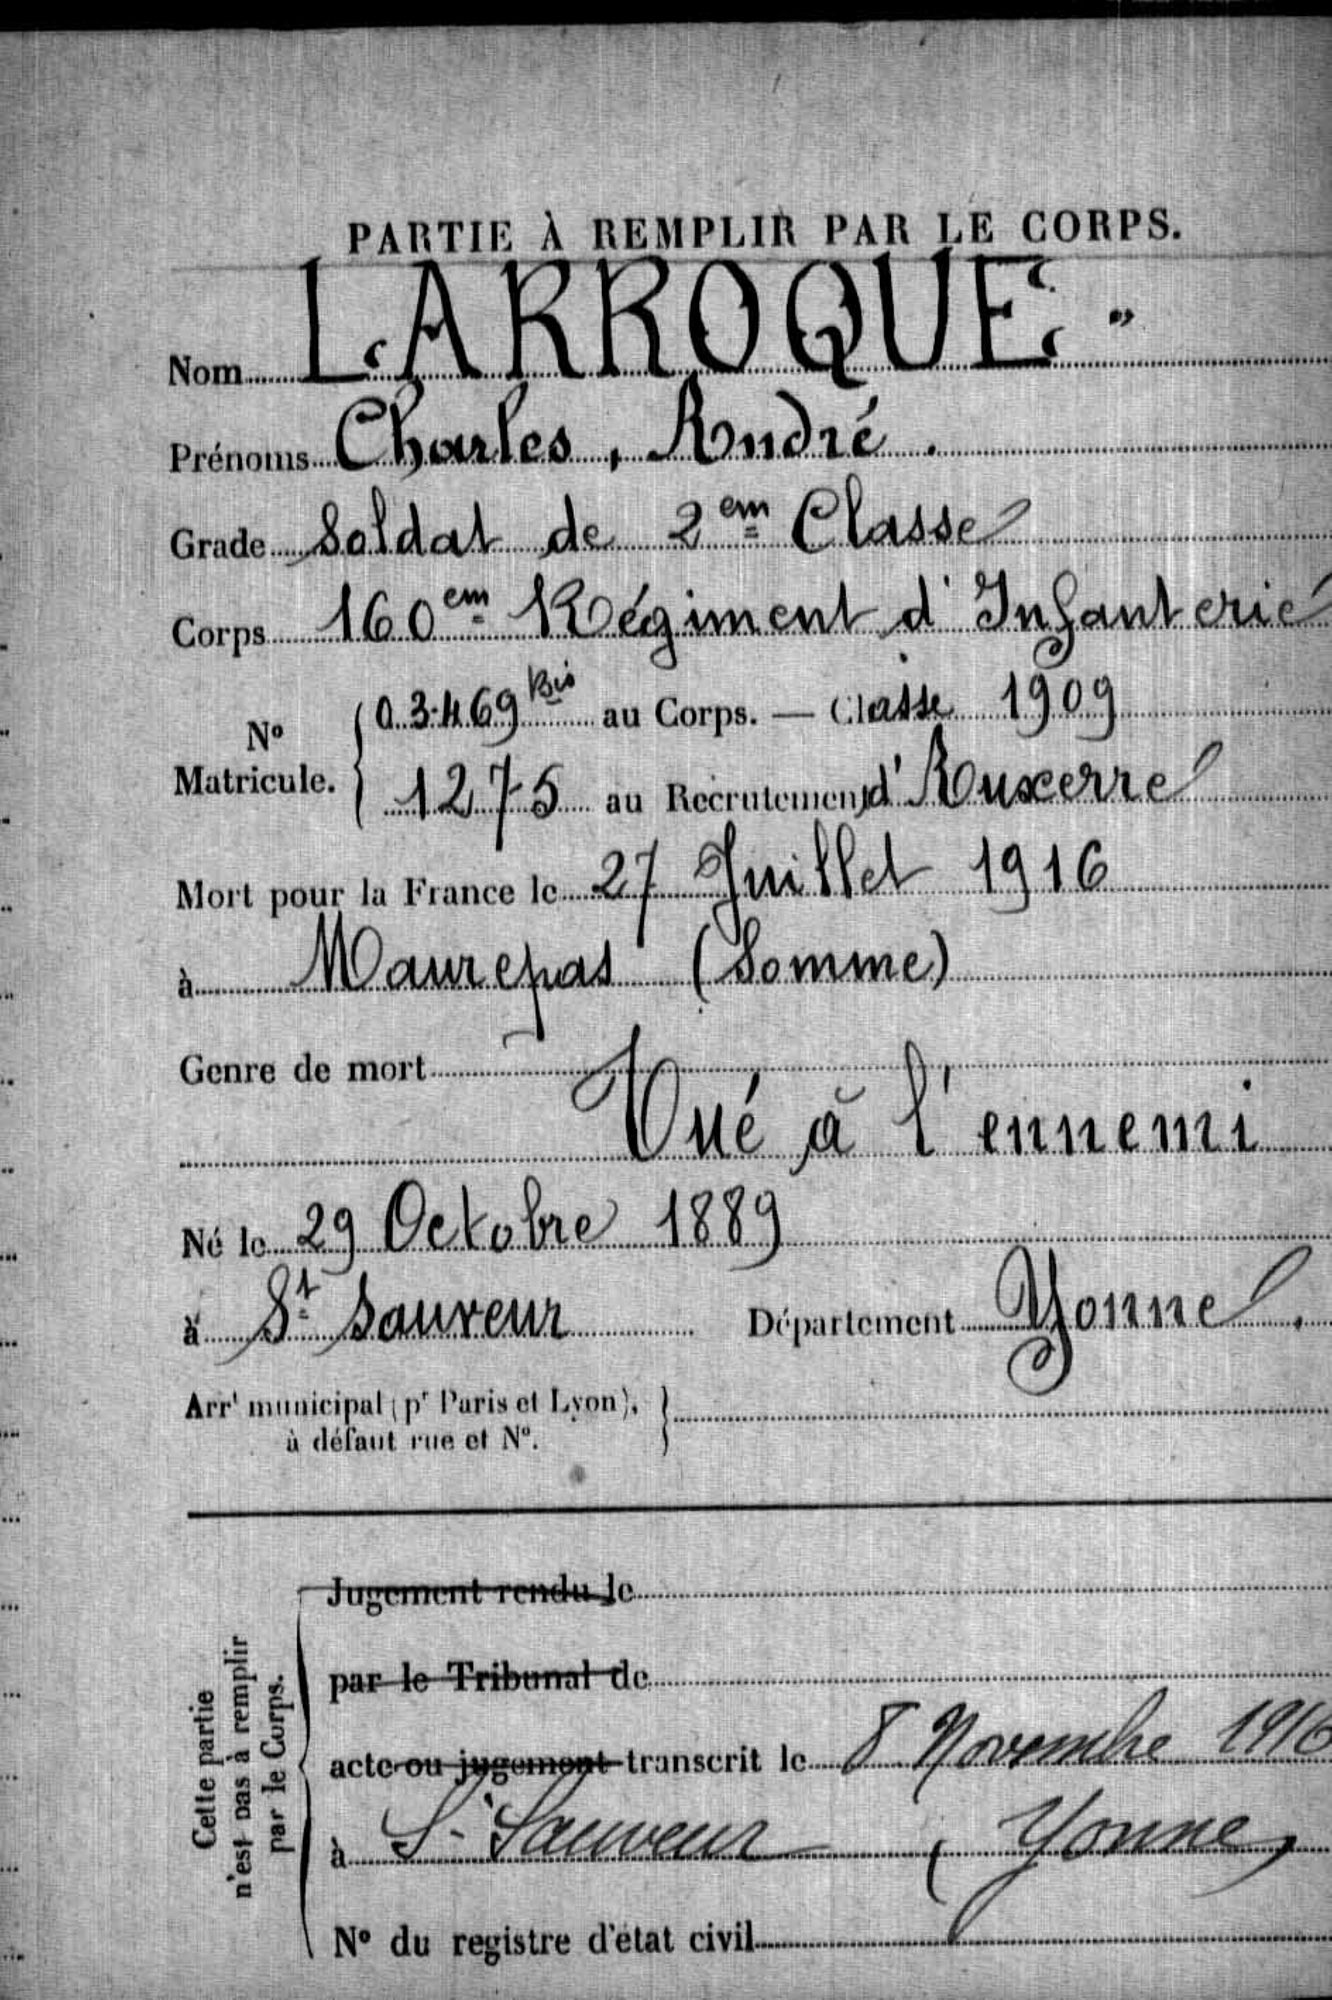 PARTIE À REMPLIR PAR LE CORPS.
Nom LARROQUE "
Prénoms Charles, André.
Grade Soldat de 2em Classe
Corps 160em Régiment d'Infanterie
N° Matricule. { 03469 Bis au Corps. — Classe 1909
1275 au Recrutement d'Auxerre
Mort pour la France le 27 Juillet 1916
à Maurepas (Somme)
Genre de mort
Tué à l'ennemi
Né le 29 Octobre 1889
à St Sauveur Département Yonne.
Arrt municipal (pr Paris et Lyon), }
à défaut rue et N°.
Cette partie
n'est pas à remplir
par le Corps.
Jugement rendu le
par le Tribunal de
acte ou jugement transcrit le 8 Novembre 1916
à St Sauveur (Yonne)
N° du registre d'état civil